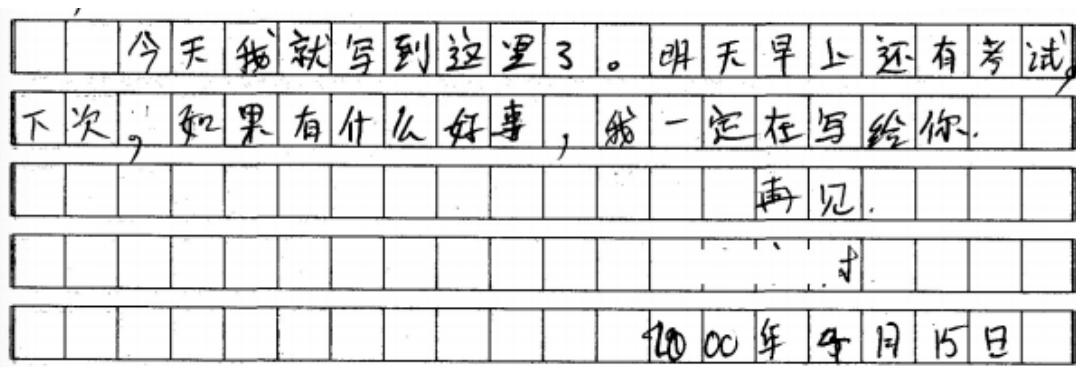 今天我就写到这里了。明天早上还有考试,
下次,如果有什么好事,我一定在写给你.
再见.
2000年 月15日